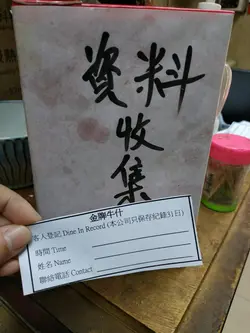 資料
收集
金獅牛什
客人登記 Dine In Record (本公司只保存紀錄31日)
時間 Time
姓名 Name
聯絡電話 Contact